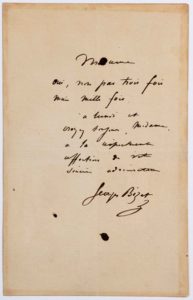 Madame
oui, non pas trois fois
mais mille fois
à lundi et
croyez toujours, Madame,
à la respectueuse
affection de votre
sincère admirateur
Georges Bizet